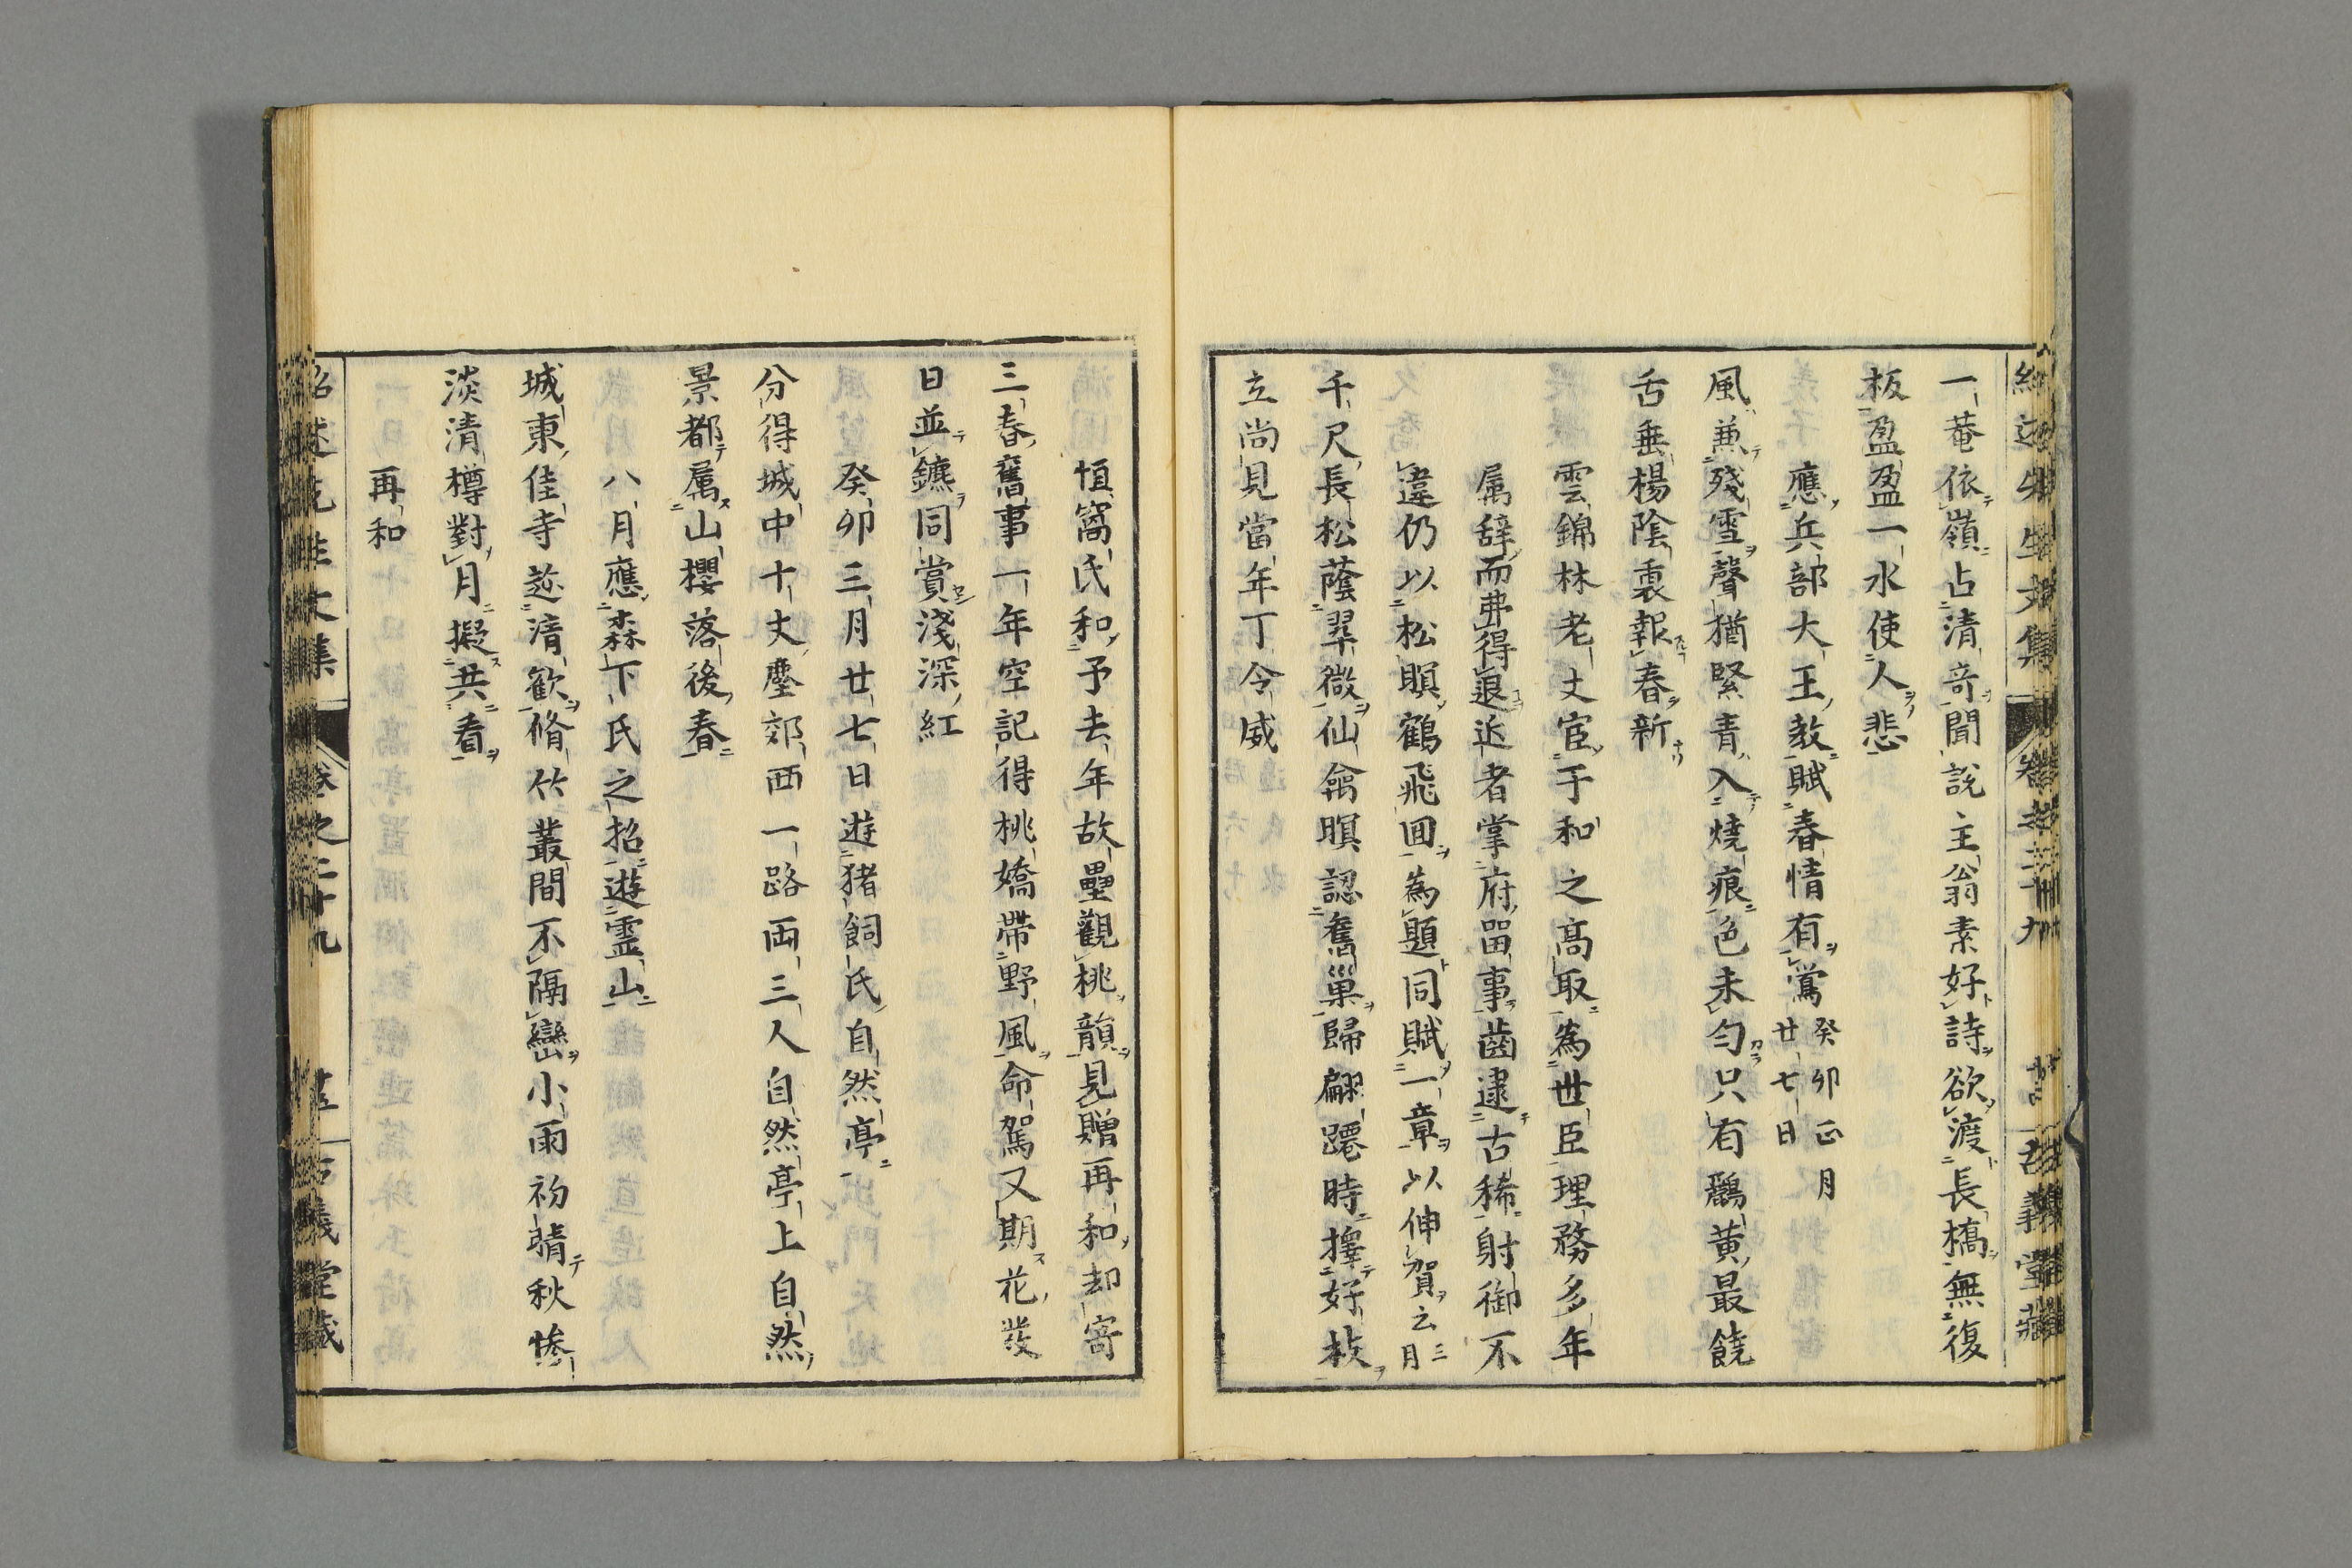 一菴依嶺占清奇聞說主翁素好詩欲渡長橋無復
板盈盈一水使人悲
應兵部大王教賦春情有鶯癸卯正月廿七日
風兼殘雪聲猶緊青入燒痕色未勻只有鸝黃最饒
舌垂楊陰裏報春新
雲錦林老丈宦于和之高取為世臣理務多年
属辞而弗得退近者掌府留事齒逮古稀射御不
違仍以松暝鶴飛回為題同賦一章以伸賀云三月
千尺長松蔭翠微仙禽暝認舊巢歸翩躚時擇好枝
立尚見當年丁令威
恒窩氏和予去年故壘觀桃韻見贈再和却寄
三春舊事一年空記得桃嬌帶野風命駕又期花發
日並鑣同賞淺深紅
癸卯三月廿七日遊猪飼氏自然亭
分得城中十丈塵郊西一路両三人自然亭上自然
景都属山櫻落後春
八月應森下氏之招遊霊山
城東佳寺迩清歓脩竹叢間不隔巒小雨初晴秋惨
淡清樽對月擬共看
再和
紹述先生文集 卷之二十九 古義堂藏